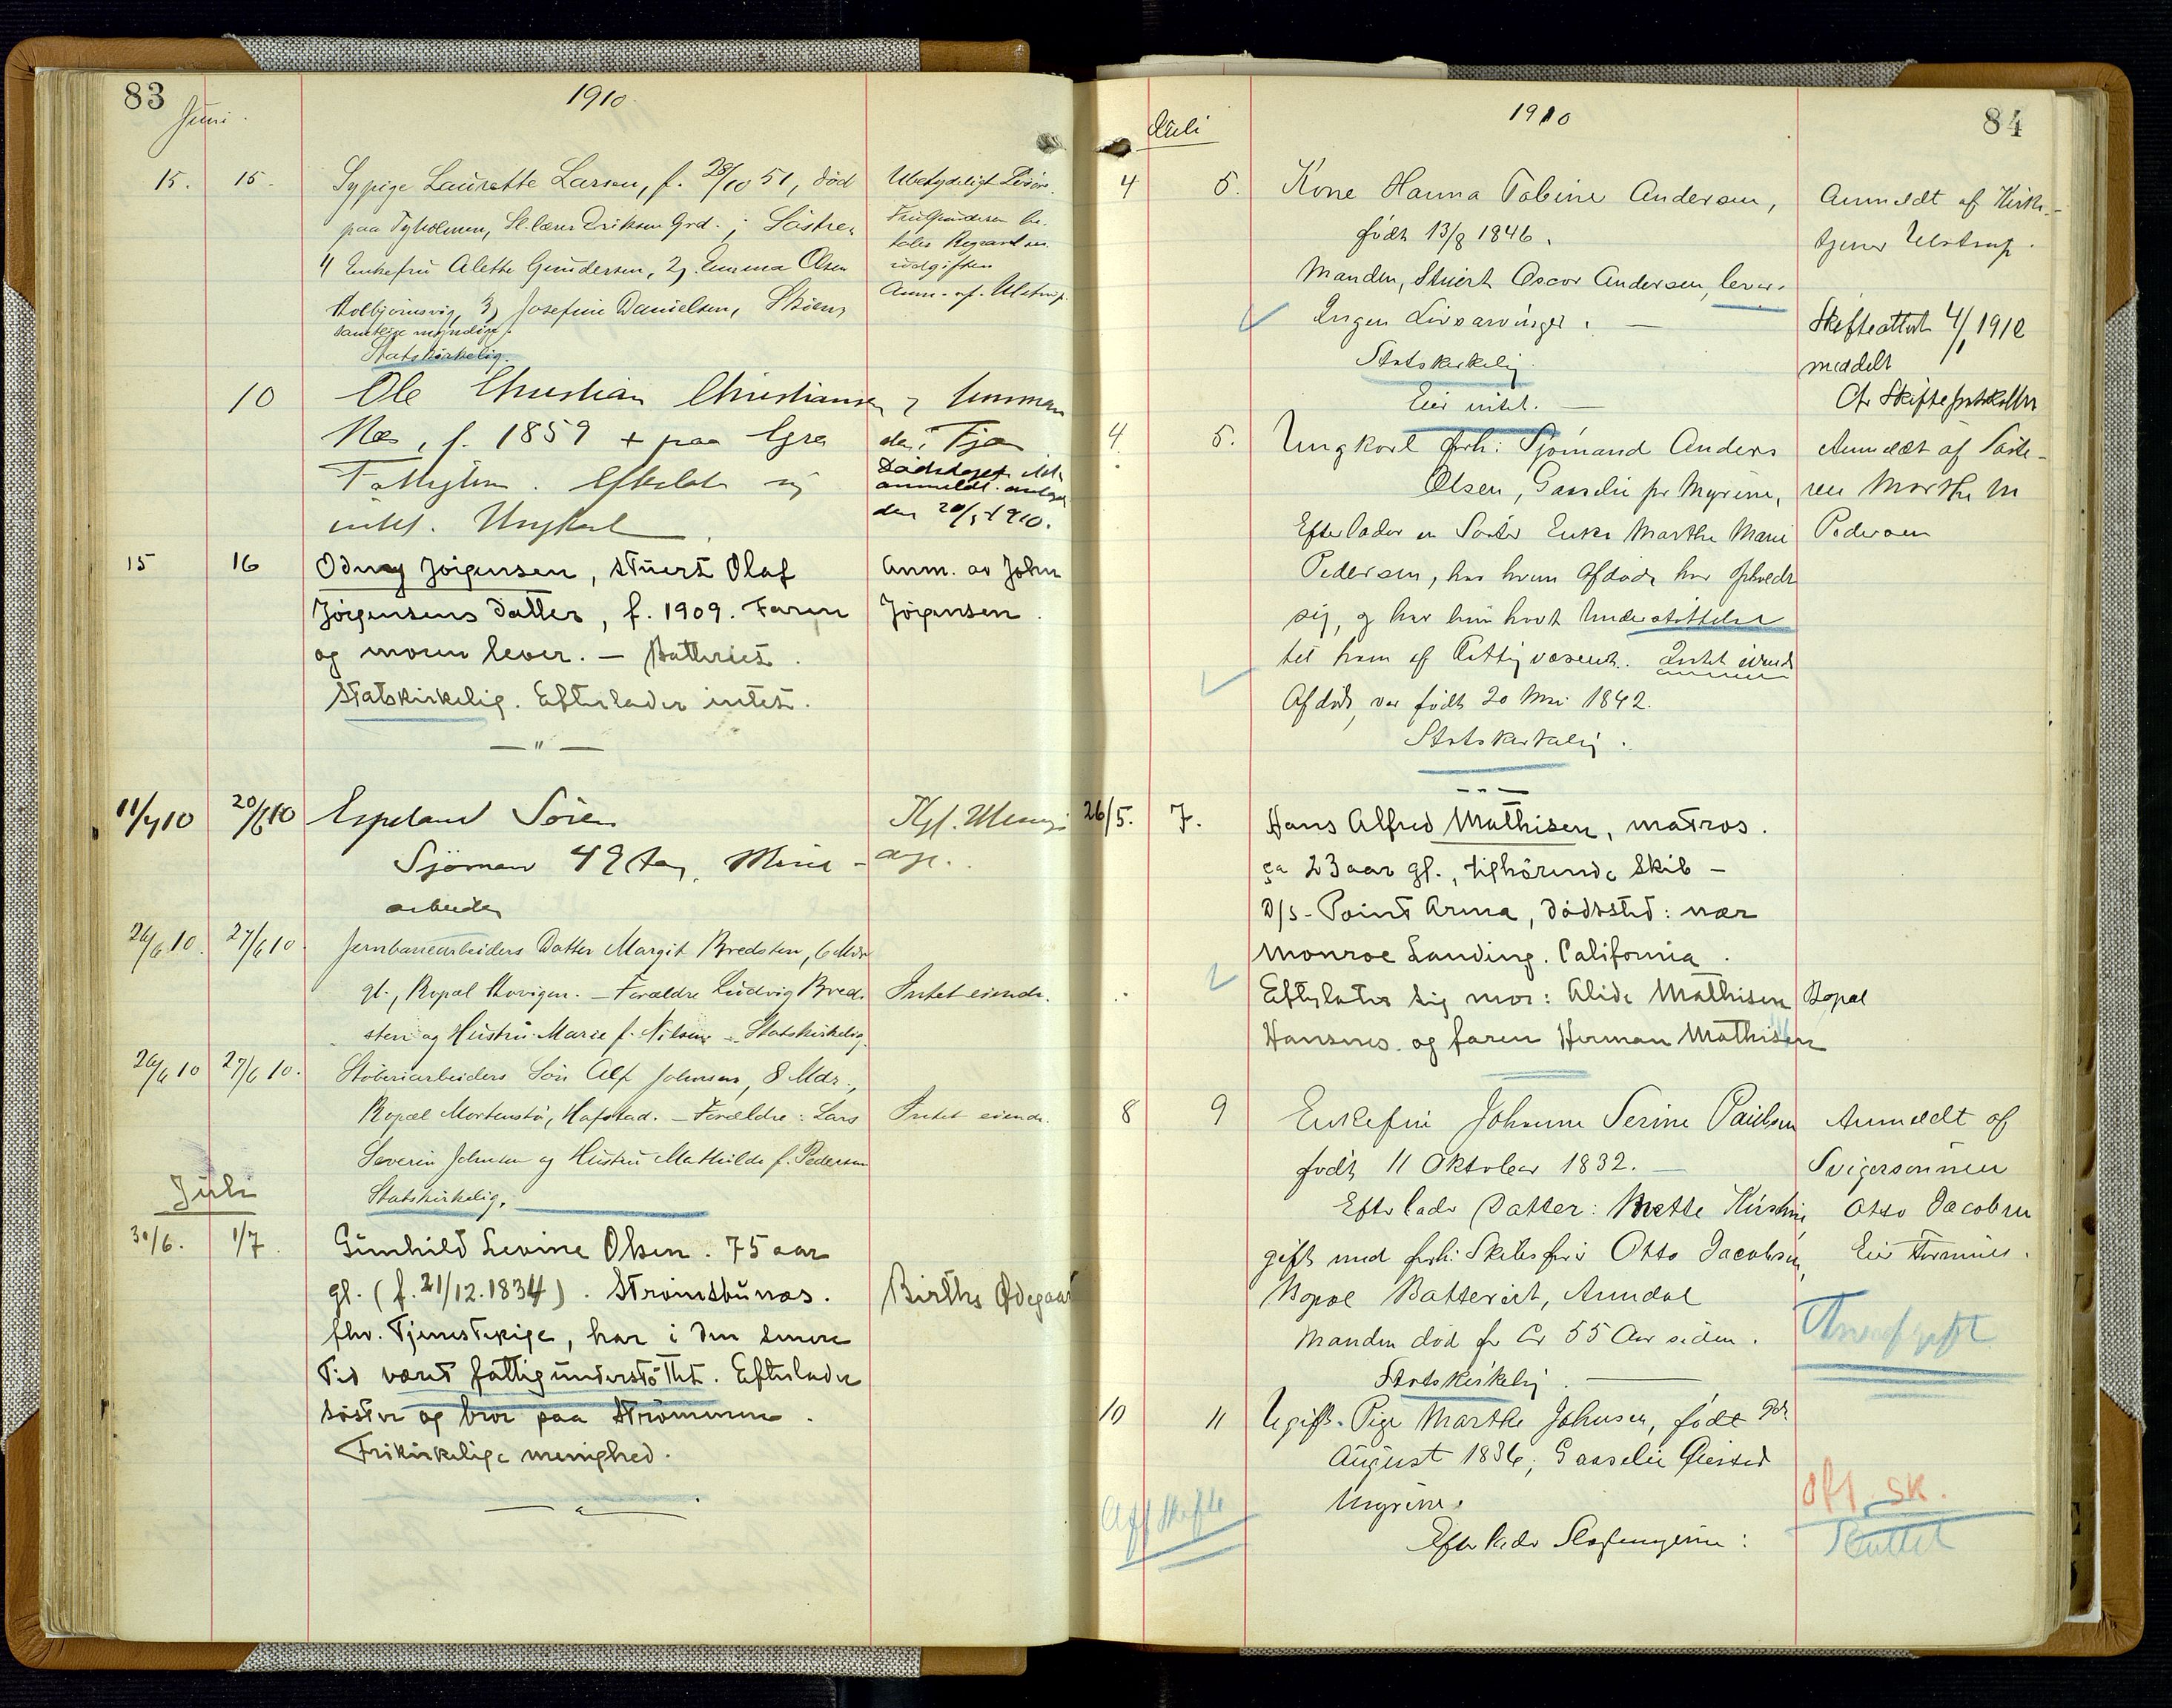 83
1910
Juni.
15. 15. Sypige Laurette Larsen, f. 28/10 51, død
Ubetydeligt Løsøre.
paa Tyholmen, Sk.lærer Eriksens Grd. ; Søstre:
Fru Gundersen be-
1) Enkefru Alette Gundersen, 2) Emma Olsen
udgiften
Kolbjørnsvig, 3) Josefine Danielsen, Skiens
Anm. af. Ulstrup.
samtlige myndige.
Statskirkelig.
10 Ole Christian Christiansen,
Næs, f. 1859 + paa
Fattiglem. Efterlater sig
Dødsdagen ikke
anmeldt.
den 20/5 1910.
intet. Ungkarl
15 16 Odny Jørgensen, Stuert Olaf
Anm. av John
Jørgensens datter, f. 1909. Faren
Jørgensen.
og moren lever. — Batteriet.
Statskirkelig. Efterlader intet.
— " —
11/4 10 20/6 10 Espeland Søren
Sjømann 49 Aar, Mine-
arbeider
26/6 10. 27/6 10. Jernbanearbeiders Datter Margit Bredsten, 6 Mdr
gl., Bopæl Hovigen. — Forældre Ludvig Bred-
Intet eiende.
sten og Hustru Marie f. Nilsen — Statskirkelig.
26/6 10 27/6 10. Støberiarbeiders Søn Alf Johnsen, 8 Mdr.,
Bopæl Mortensbø, Hafstad. — Forældre: Lars
Intet eiende.
Severin Johnsen og Hustru Mathilde f. Pedersen
Statskirkelig.
Juli
30/6. 1/7. Gunhild Levine Olsen. 75 aar
gl. (f. 21/12. 1834). Strømsbunæs.
Birthe Ødegaard
fhv. Tjenestepige, har i den senere
Tid været fattigunderstøttet. Efterlader
søster og bror paa Strømmen.
Frikirkelige menighed.
84
1910
Juli
4 5. Kone Hanna Tobine Andersen,
Anmeldt af Kirke-
født 13/8 1846.
tjener Ulstrup.
Manden, Stuert Oscar Andersen, lever.
Ingen Livsarvinger. —
Skifteattest 4/1 1912
Statskirkelig.
meddelt
Eier intet. —
Cfr Skifteprotokollen
4 5. Ungkarl forh: Sjømand Anders
Anmeldt af Søste-
Olsen, Gaaselie pr Myrene,
ren Marthe M
Efterlader en Søster Enke Marthe Marie
Pedersen
Pedersen, hos hvem Afdøde har opholdt
sig, og har hun havt Understøttelse
til ham af Fattigvæsenet. Intet eiende
Afdøde var født 20 Mai 1842.
Statskirkelig.
26/5. 7. Hans Alfred Mathisen, matros.
ca 23 aar gl., tilhørende Skib –
D/s - Point Arena, dødssted: nær
Monroe Landing. California.
Efterlater sig mor: Alide Mathisen
Bopæl
Hansnes. og faren Herman Mathisen
8 9 Enkefru Johanne Serine Paulsen
Anmeldt af
født 11 Oktober 1832. —
Svigersønnen
Efterlader Datter: Mette Kirstine,
Otto Jacobsen
gift med forh: Skibsfører Otto Jacobsen,
Eier Formues.
Bopæl Batteriet, Arendal
Manden død for Cr 55 Aar siden.
Arveafgift
Statskirkelig. —
10 11 Ugift Pige Marthe Johnsen, født 9de
August 1836, Gaaselie Øiested
Myrene.
off. sk.
Off Skifte
Sluttet
Efterlader Slægtningerne: